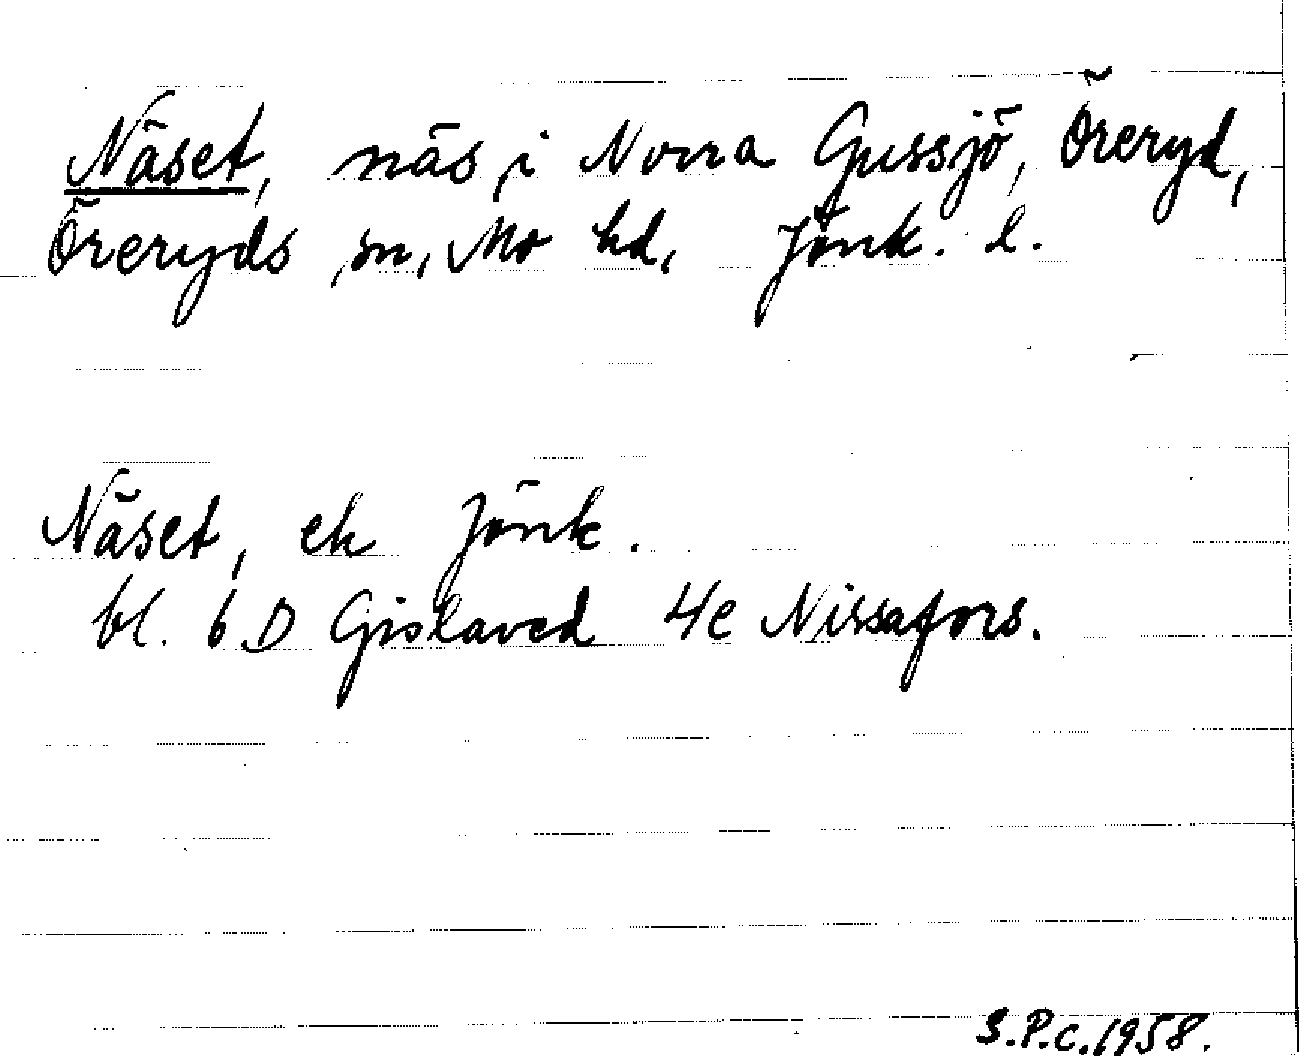 Näset, näs i Norra Gussjö, Öreryd,
Öreryds sn, Mo hd, Jönk. l.
Näset, ek Jönk.
bl. 6.D Gislaved 4e Nissafors.
S.P.C. 1958.